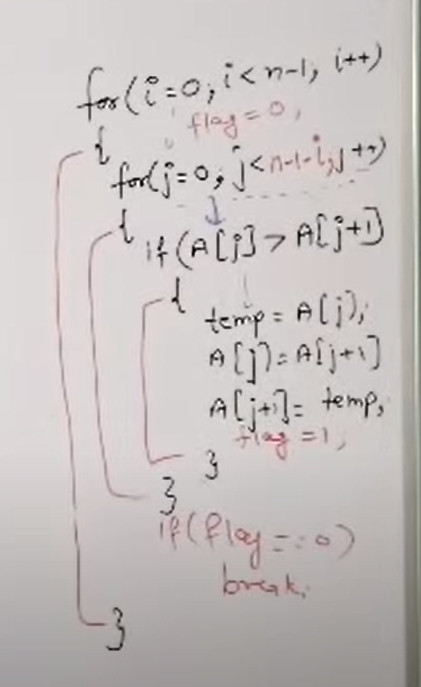 for(i=0; i<n-1; i++)
flag=0;
{
for(j=0; j<n-1-i; j++)
{
if(A[j]>A[j+1]
{
temp=A[j];
A[j]=A[j+1]
A[j+1]=temp;
flag=1;
}
}
if(flag==0)
break;
}